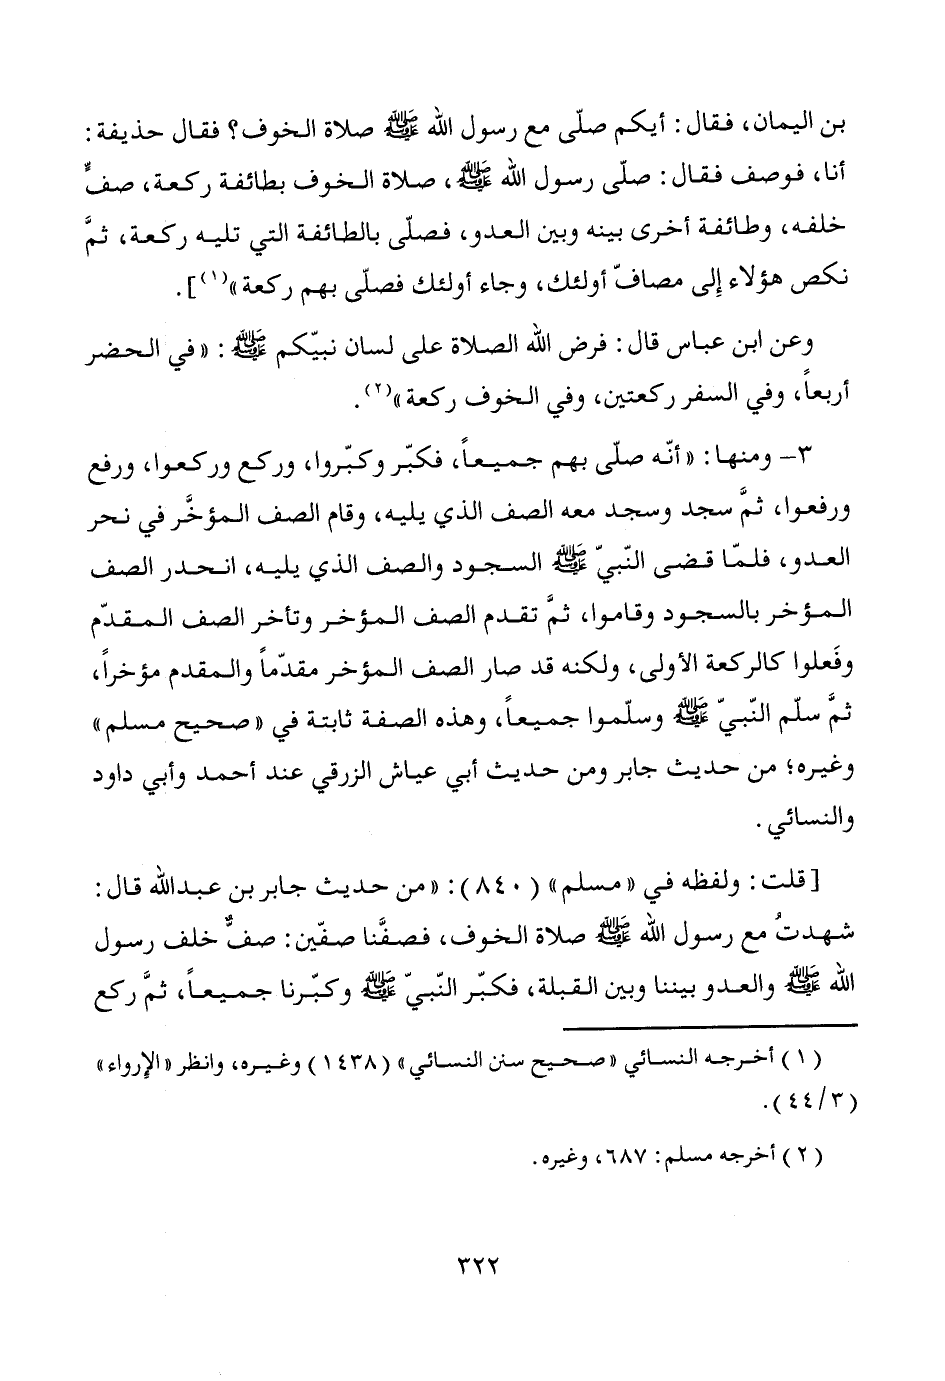 بن اليمان، فقال: أيكم صلّى مع رسول الله ﷺ صلاة الخوف؟ فقال حذيفة:
أنا، فوصف فقال: صلّى رسول الله ﷺ، صلاة الخوف بطائفة ركعة، صفٌّ
خلفه، وطائفة أخرى بينه وبين العدو، فصلّى بالطائفة التي تليه ركعة، ثمَّ
نكص هؤلاء إلى مصافّ أولئك، وجاء أولئك فصلّى بهم ركعة»(١)].
وعن ابن عباس قال: فرض الله الصلاة على لسان نبيّكم ﷺ: «في الحضر
أربعاً، وفي السفر ركعتين، وفي الخوف ركعة»(٢).
٣- ومنها: «أنّه صلّى بهم جميعاً، فكبّر وكبّروا، وركع وركعوا، ورفع
ورفعوا، ثمَّ سجد وسجد معه الصف الذي يليه، وقام الصف المؤخَّر في نحر
العدو، فلمّا قضى النّبيّ ﷺ السجود والصف الذي يليه، انحدر الصف
المؤخر بالسجود وقاموا، ثمَّ تقدم الصف المؤخر وتأخر الصف المقدّم
وفَعلوا كالركعة الأولى، ولكنه قد صار الصف المؤخر مقدّماً والمقدم مؤخراً،
ثمَّ سلّم النّبيّ ﷺ وسلّموا جميعاً، وهذه الصفة ثابتة في «صحيح مسلم»
وغيره؛ من حديث جابر ومن حديث أبي عياش الزرقي عند أحمد وأبي داود
والنسائي.
[قلت: ولفظه في «مسلم» (٨٤٠): «من حديث جابر بن عبدالله قال:
شهدتُ مع رسول الله ﷺ صلاة الخوف، فصفَّنا صفّين: صفٌّ خلف رسول
الله ﷺ والعدو بيننا وبين القبلة، فكبّر النّبيّ ﷺ وكبّرنا جميعاً، ثمَّ ركع
(١) أخرجه النسائي «صحيح سنن النسائي» (١٤٣٨) وغيره، وانظر «الإرواء»
(٣/ ٤٤).
(٢) أخرجه مسلم: ٦٨٧، وغيره.
٣٢٢